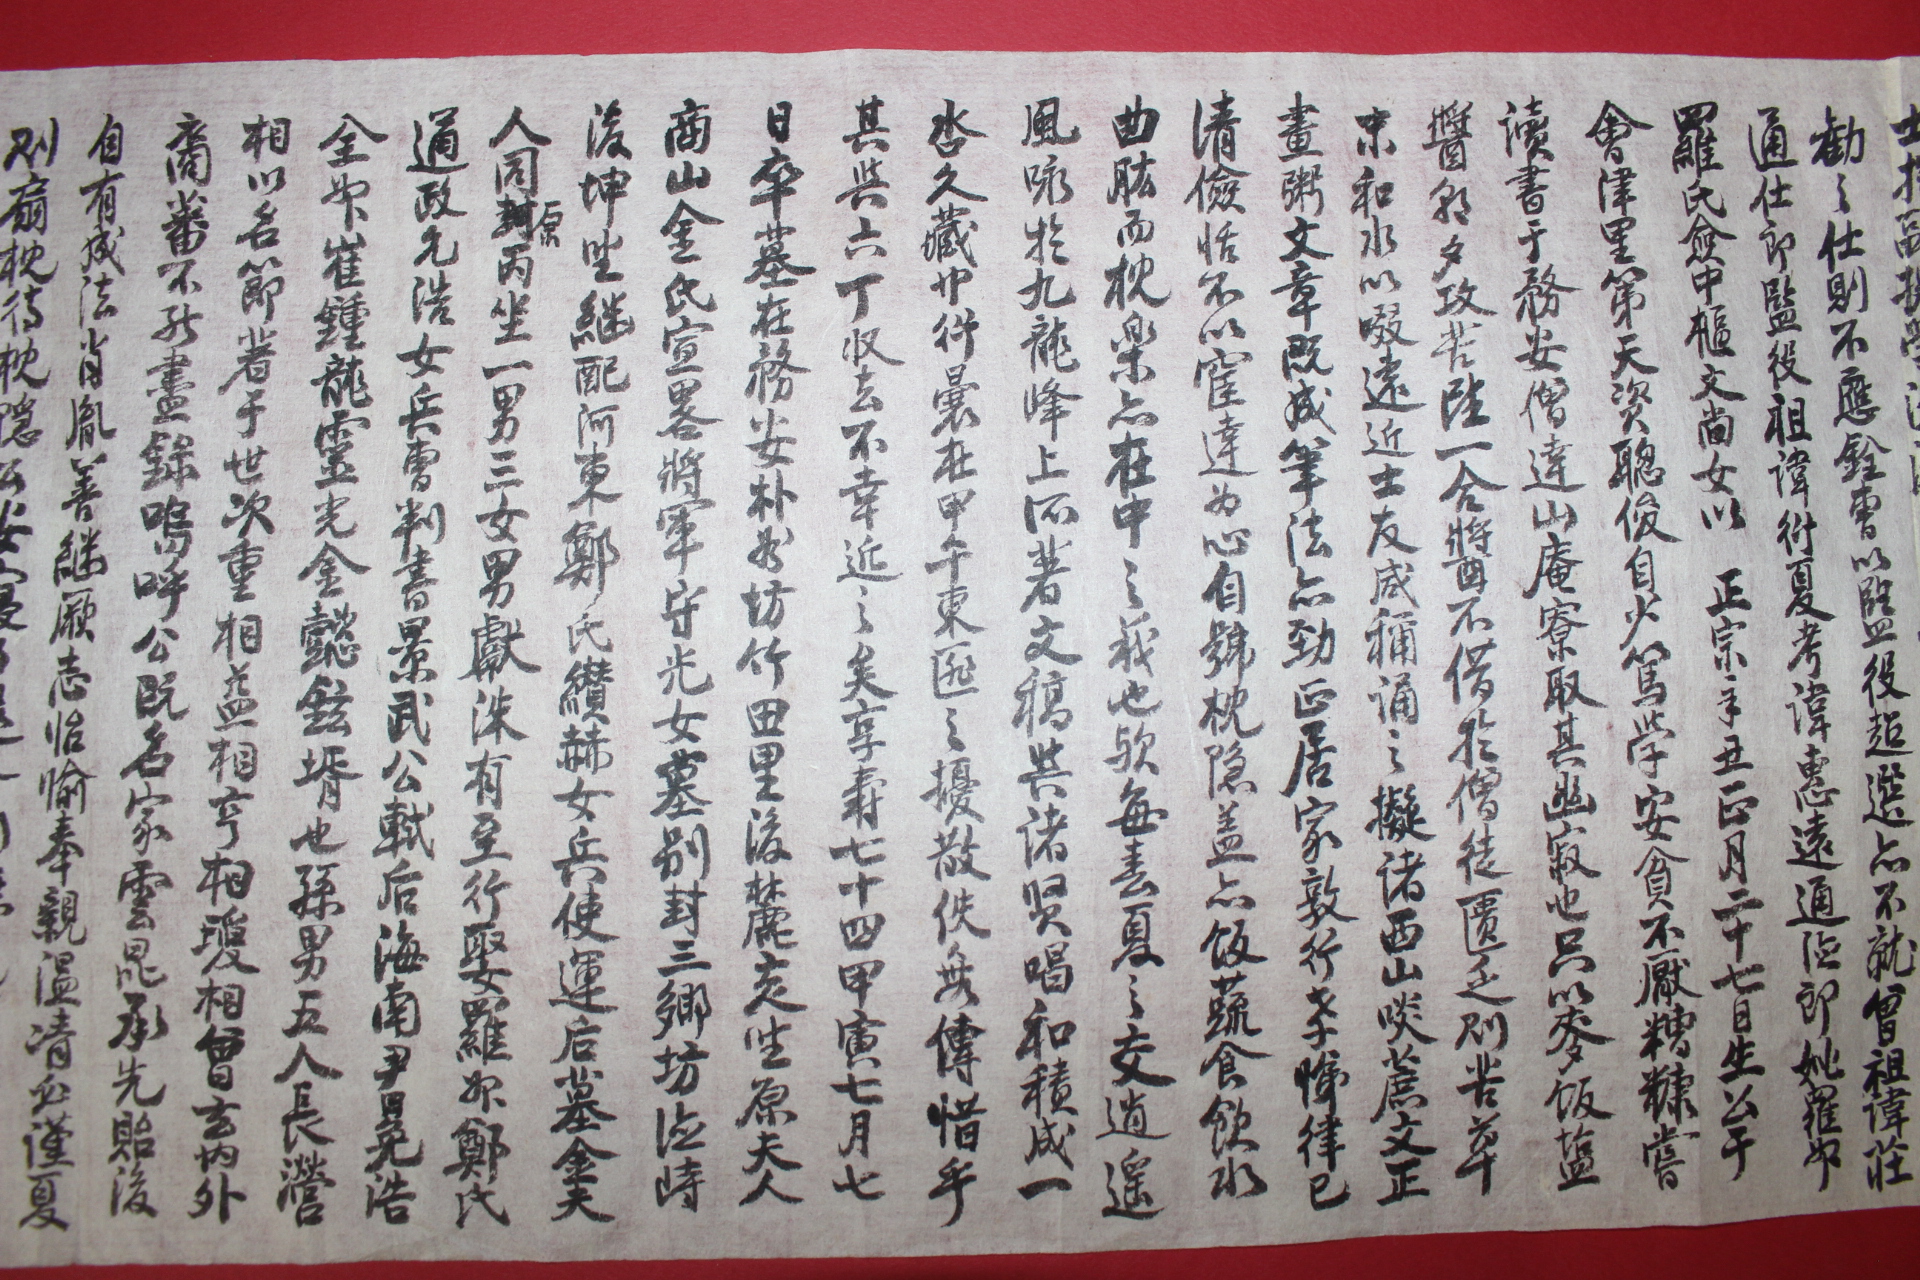 勸之仕則不應銓曹以監役超選亦不就曾祖諱莊
通仕郎監役祖諱衍夏考諱惠遠通德郎妣羅州
羅氏僉中樞文尙女以 正宗辛丑正月二十七日生公于
會津里第天資聰俊自少篤學安貧不厭糟糠嘗
讀書于務安僧達山庵寮取其幽寂也只以麥飯鹽
醬朝夕攻苦 一合醬不借於僧徒匱乏則苦草
末和水以啜遠近士友咸稱誦之擬諸西山啖薺文正
畫粥文章旣成筆法亦勁正居家敦行孝悌律己
淸儉恬不以窘達爲心自號枕隱盖亦飯蔬食飮水
曲肱而枕樂亦在中之義也歟每春夏之交逍遙
風咏於九龍峰上所著文稿與諸賢唱和積成一
呇久藏巾衍曩在甲午東匪之擾散佚無傳惜乎
其與六丁收去不幸近之矣享壽七十四甲寅七月七
日卒墓在務安朴谷坊竹田里後麓亥坐原夫人
商山金氏宣畧將軍守光女墓别封三鄕坊德峙
後坤坐繼配河東鄭氏纘赫女兵使運后墓金夫
人同封原丙坐一男三女男獻洙有至行娶羅州鄭氏
通政允浩女兵曹判書景武公軾后海南尹晃浩
全州崔鍾龍靈光金懿鉉壻也孫男五人長瀯
相以名節著于世次重相益相亨相瓊相曾玄內外
裔蕃不能盡錄嗚呼公旣名家雲昆承先貽後
自有成法肖胤善繼厥志怡愉奉親溫凊必謹夏
則扇枕待枕隱公安寢